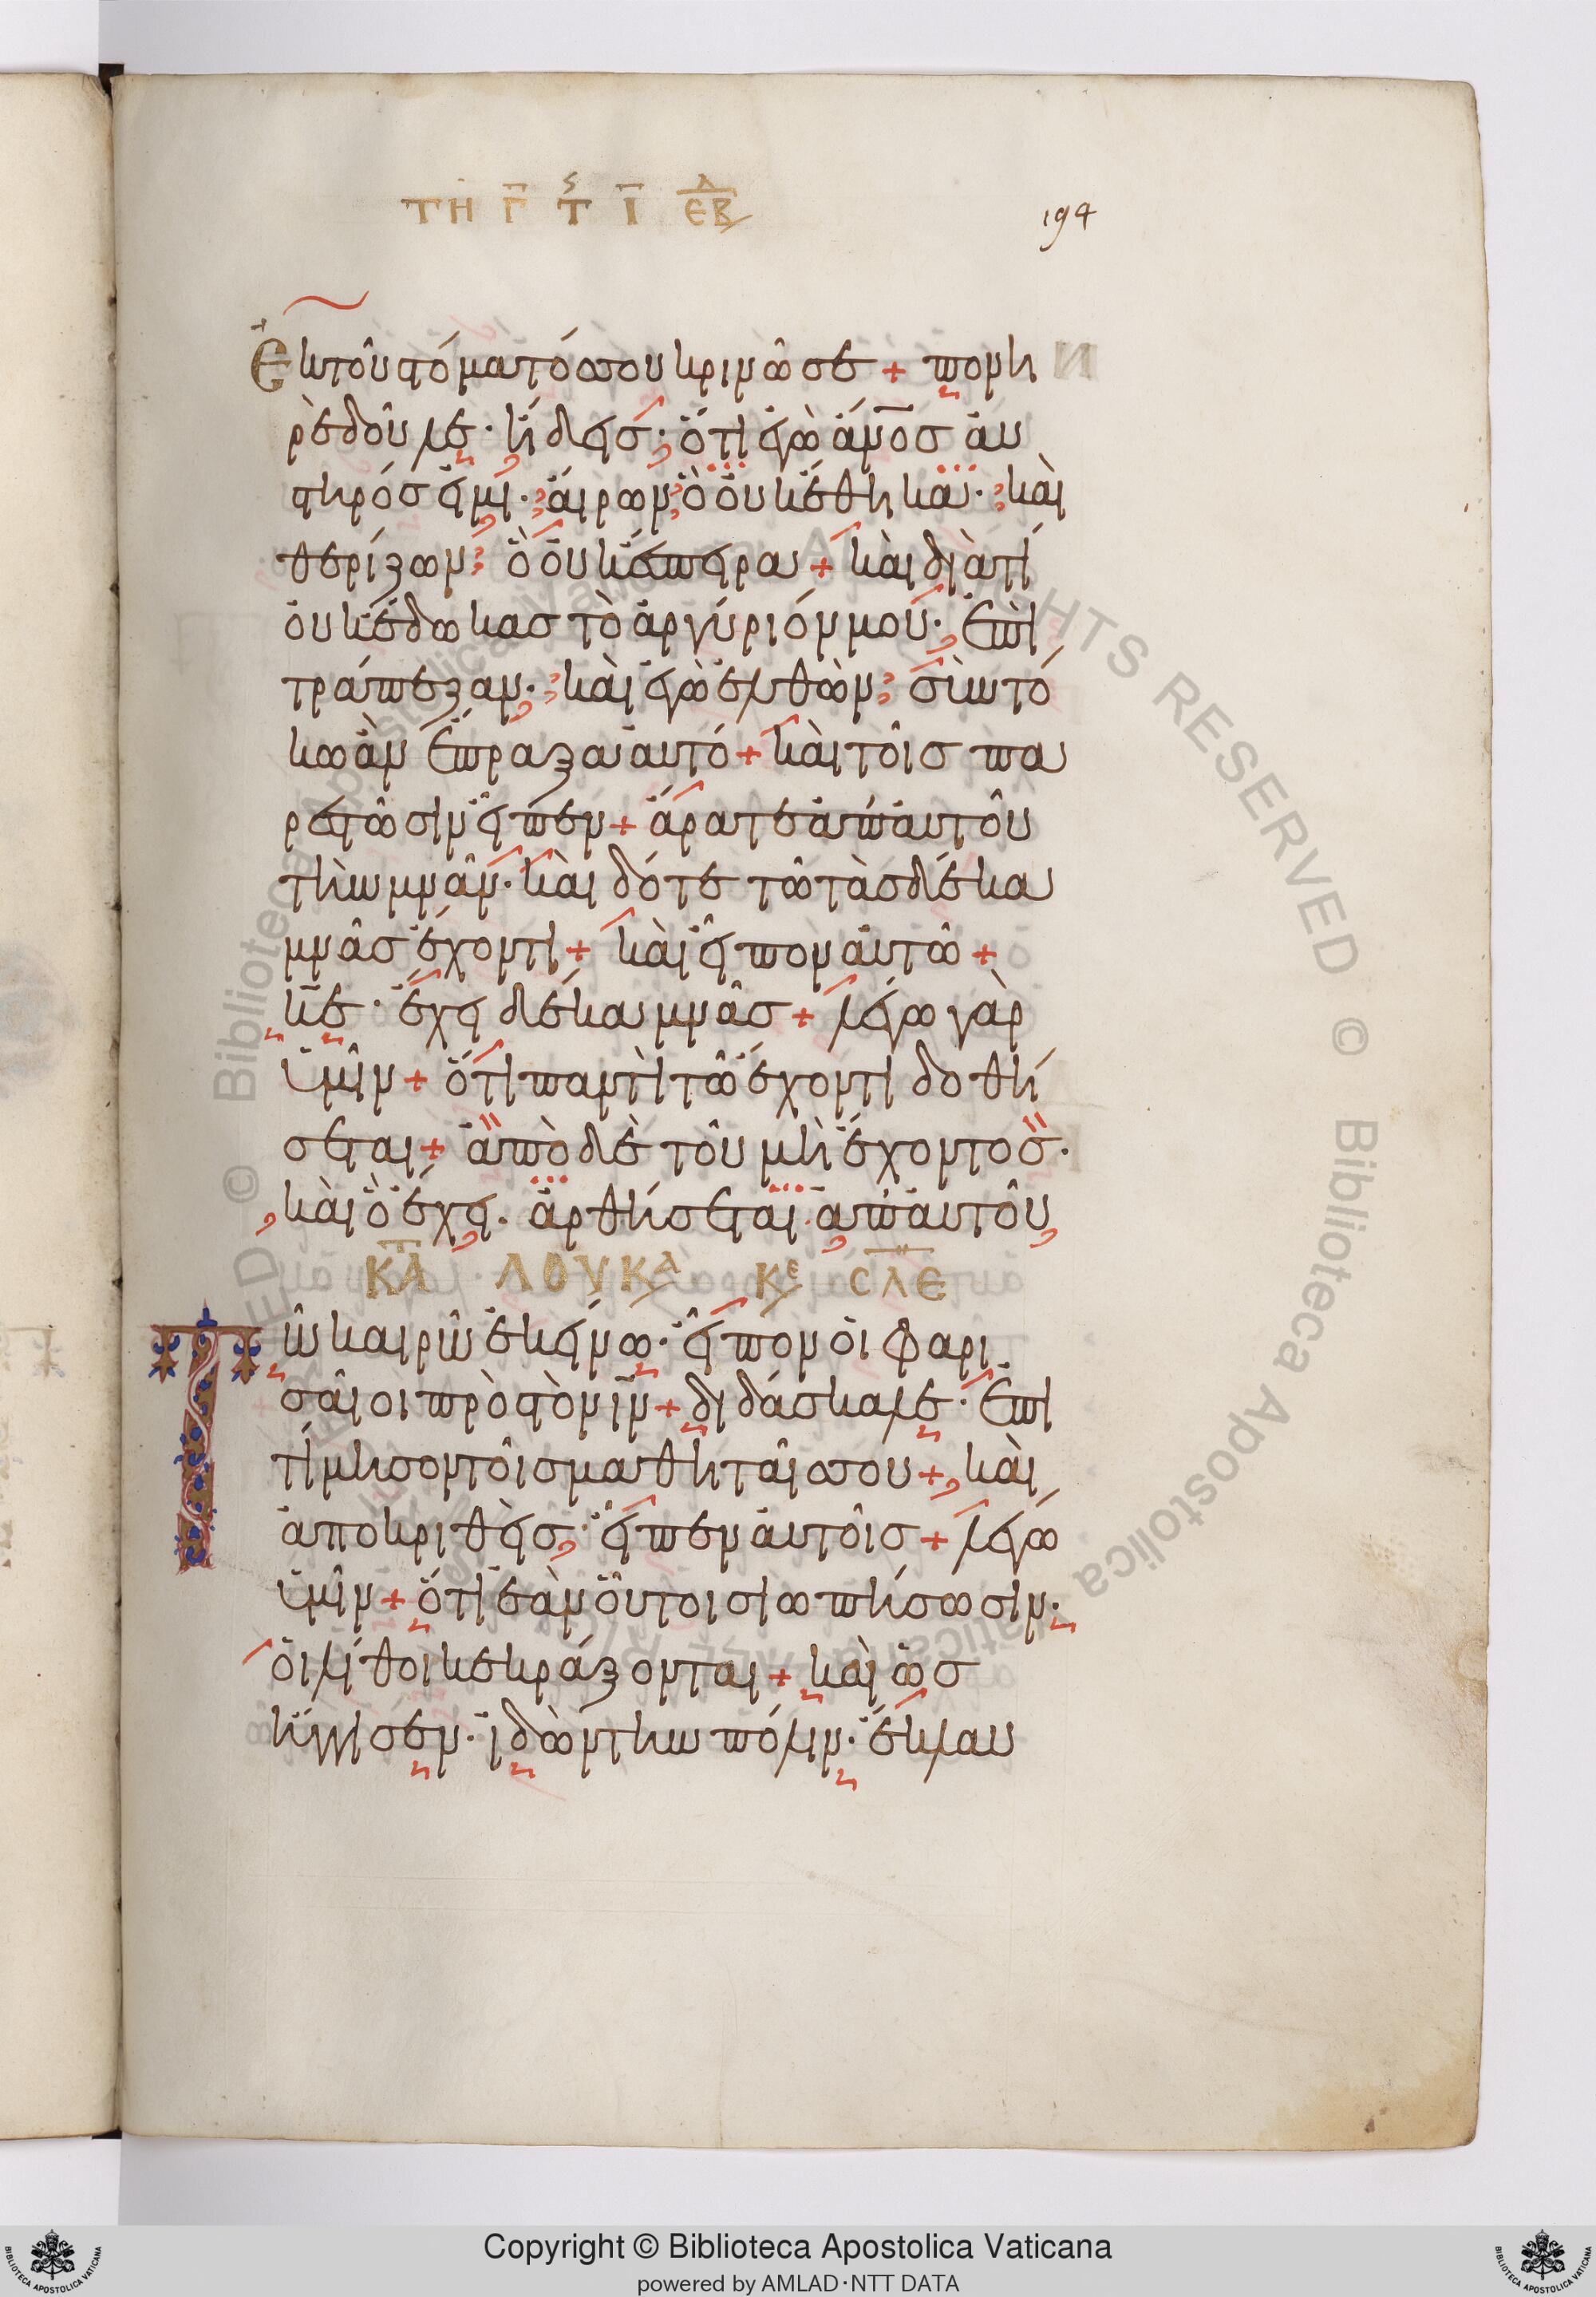 ΤΗ Γ̅ Τ Ι̅ ΕΒΔ
194
Ἐκ τοῦ στόματός σου κρινῶ σε + πονη
ρὲ δοῦλε· ἤδεις· ὅτι ἐγὼ ἄν̅ο̅σ αυ
στηρός εἰμι· αἴρων ὃ οὐκ ἔθηκα· καὶ
θερίζων ὃ οὐκ ἔσπειρα + καὶ διὰ τί
οὐκ ἔδωκας τὸ ἀργύριόν μου· ἐπὶ
τράπεζαν· καὶ ἐγὼ ἐλθὼν σὺν τό
κω ἂν ἔπραξα αὐτό + καὶ τοῖς πα
ρεστῶσιν εἶπεν + ἄρατε ἀπ' αὐτοῦ
τὴν μνᾶν· καὶ δότε τῶ τὰς δέκα
μνᾶς ἔχοντι + καὶ εἶπον αὐτῶ +
κ̅ε̅· ἔχει δέκα μνᾶς + λέγω γὰρ
ὑμῖν + ὅτι παντὶ τῶ ἔχοντι δοθή
σεται + ἀπὸ δὲ τοῦ μὴ ἔχοντος·
καὶ ὃ ἔχει· ἀρθήσεται ἀπ' αὐτοῦ
ΚΑΤ ΛΟΥΚΑ ΚΕ CΛΕ
Τῶ καιρῶ ἐκείνω· εἶπον οἱ φαρι
σαῖοι πρὸς τὸν ι̅ν̅ + διδάσκαλε· ἐπι
τίμησον τοῖς μαθηταῖς σου + καὶ
ἀποκριθεὶς· εἶπεν αὐτοῖς + λέγω
ὑμῖν + ὅτι ἐὰν οὗτοι σιωπήσωσιν·
οἱ λίθοι κεκράξονται + καὶ ὡς
ἤγγισεν· ἰδὼν τὴν πόλιν· ἔκλαυ
Copyright © Biblioteca Apostolica Vaticana
powered by AMLAD·NTT DATA